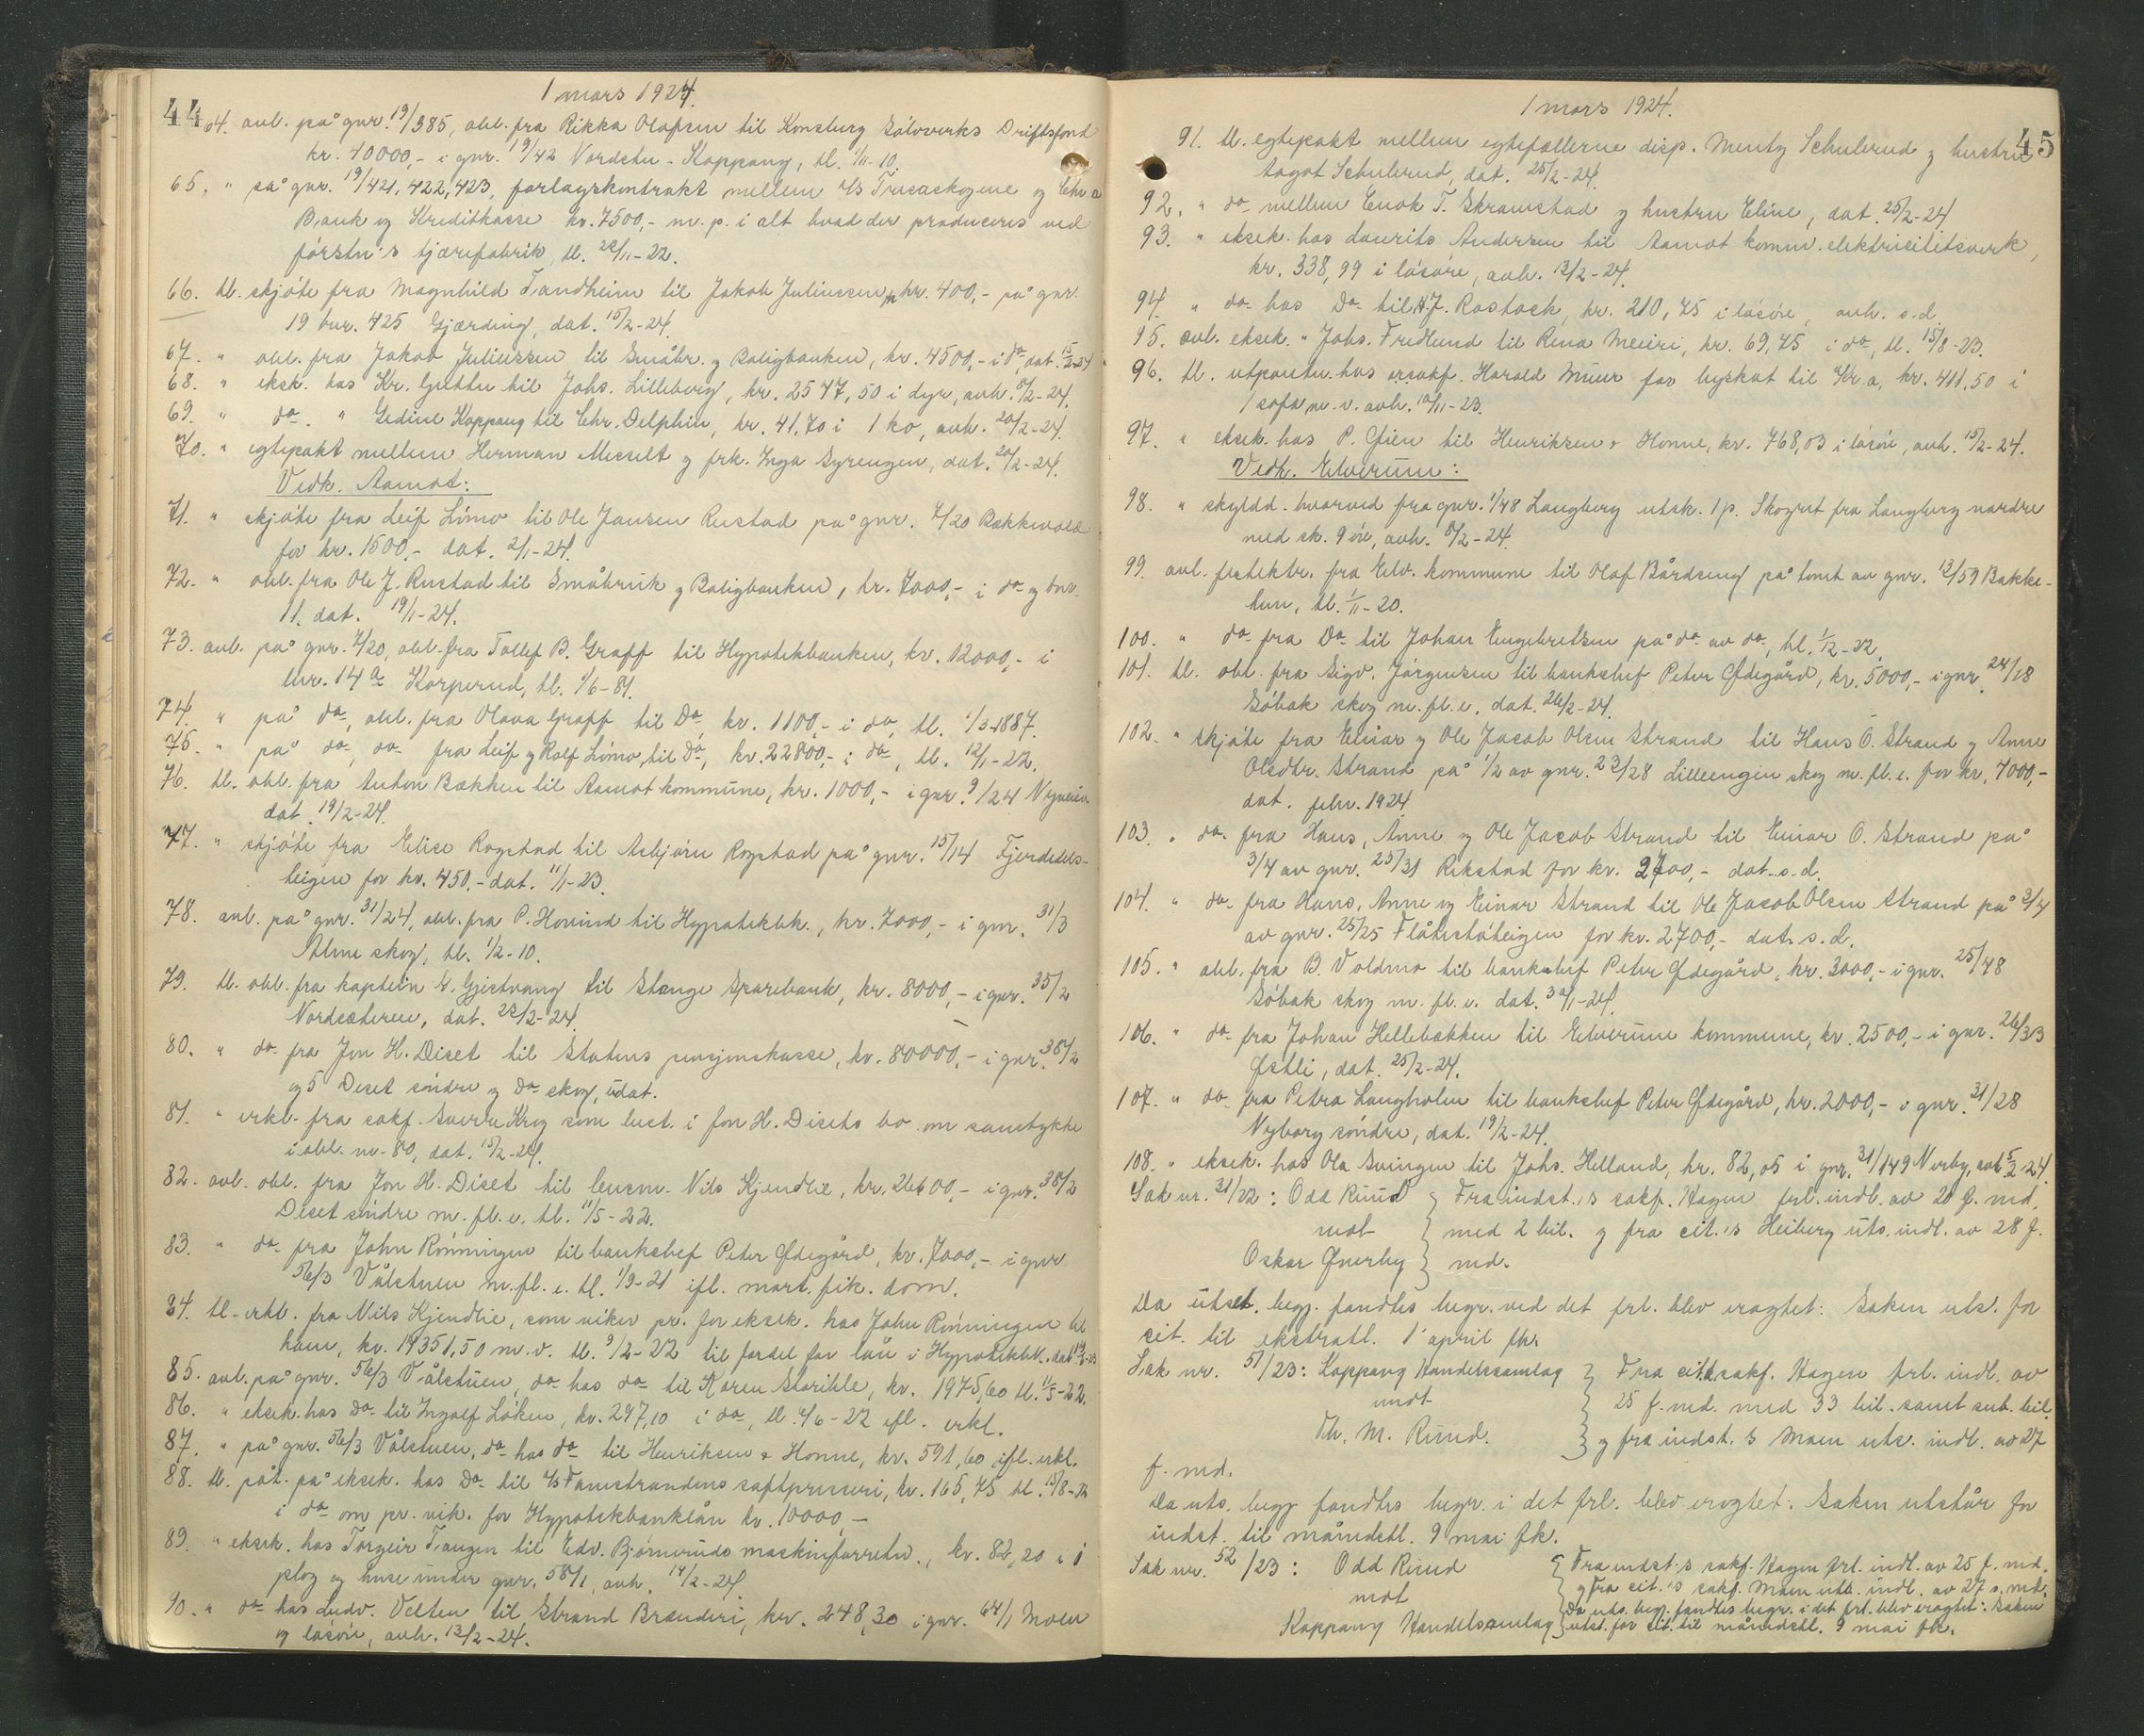 44
1 mars 1924.
64. avl. på gnr. 19/385, obl. fra Rikka Olafsen til Konsberg Sølvverks Driftsfond
kr. 40000,- i gnr. 19/42 Nordstu - Koppang, tl. 1/11-10.
65. " på gnr. 19/421, 422, 423, forlagskontrakt mellem A/s Trysaskogene og Chr.a
Bank og Kreditkasse kr. 7500,- m. p. i alt hvad der produceres ved
førstn's tjærefabrik, tl. 22/11-22.
66. tl. skjøte fra Magnhild Tandheim til Jakob Juliussen, kr. 400,- på gnr.
19 bnr. 425 Gjærding, dat. 15/2-24.
67. " obl. fra Jakob Juliussen til Småbr. og Boligbanken, kr. 4500,- i do, dat. 15/2-24
68. " eksk. hos Kr. Guttu til Johs. Lilleberg, kr. 2547,50 i dyr, avh. 8/2-24.
69. " do. " Gedine Koppang til Chr. Delphin, kr. 41,70 i 1 ko, avh. 20/2-24.
70. " egtepakt mellem Herman Messelt og frk. Inga Gyrengen, dat. 20/2-24.
Vedk. Aamot:
71. " skjøte fra Leif Limo til Ole Jansen Rustad på gnr. 7/20 Bækkevold
for kr. 1500,- dat. 2/1-24.
72. " obl. fra Ole J. Rustad til Småbruk og Boligbanken, kr. 7000,- i do og bnr.
11. dat. 19/1-24.
73. avl. på gnr. 7/20, obl. fra Tollef B. Graff til Hypotekbanken, kr. 12000,- i
lnr. 14 a Korperud, tl. 1/6-81.
74. " på do, obl. fra Olava Graff til Do, kr. 1100,- i do, tl. 1/3-1887.
75. " på do, do fra Leif og Rolf Limo, til do, kr. 22800,- i do, tl. 12/1-22.
76. tl. obl. fra Anton Bækken til Aamot kommune, kr. 1000,- i gnr. 9/24
dat. 19/2-24.
77. " skjøte fra Elise Rogstad til Asbjørn Rogstad på gnr. 15/14 Fjerdedels-
teigen for kr. 450,- dat. 11/1-23.
78. avl. på gnr. 31/24, obl. fra P. Hovind til Hypotekbk., kr. 7000,- i gnr. 31/3
Alme skog, tl. 1/2-10.
79. tl. obl. fra kaptein E. Gjestvang til Stange Sparebank, kr. 8000,- i gnr. 35/2
Nordsæteren, dat. 22/2-24.
80. " do fra Jon H. Diset til Statens pensjonskasse, kr. 80000,- i gnr. 38/2
og 5 Diset søndre og Do skog, udat.
81. " erkl. fra sakf. Sverre Krog som best. i Jon H. Disets bo om samtykke
i obl. nr. 80, dat. 15/2-24.
82. avl. obl. fra Jon H. Diset til lensm. Nils Kjendlie, kr. 26600,- i gnr. 38/2
Diset søndre m. fl. e. tl. 11/5-22.
83. " do fra John Rønningen til banksjef Peter Ødegård, kr. 7000,- i gnr
56/3 Vålstuen m. fl. e. tl. 1/9-21 ifl. mort. fik. dom.
84. tl. erkl. fra Nils Kjendlie, som viker pr. for eksek. hos John Rønningen til
ham, kr. 14351,50 m. v. tl. 9/2-22 til fordel for lån i Hypotekbk.
85. avl. på gnr. 56/3 Vålstuen, do hos do til Karen Storihle, kr. 1975,60 tl. 11/5-22.
86. " eksek. hos Do til Ingolf Løken, kr. 297,10 i do, tl. 4/6-22 ifl. erkl.
87. " på gnr. 56/3 Vålstuen, do hos do til Henriksen & Honne, kr. 591,60 ifl. erkl.
88. tl. påt. på eksek. hos Do til A/s Tamstrandens saftpresseri, kr. 165,75 tl.
i do om pr. vik. for Hypotekbanklån kr. 10000,-
89. " eksek. hos Torgeir Tangen til Edv. Bjørneruds maskinforretn., kr. 82,20 i 1
plog og huse under gnr. 58/1, avh. 14/2-24.
90. " do hos Ludv. Velten til Strand Brænderi, kr. 248,30 i gnr. 64/1 Moen
og løsøre, avh. 13/2-24.
45
1 mars 1924.
91. tl. egtepakt mellem egtefællerne disp. Mentz Schulerud og hustru
Aagot Schulerud, dat. 25/2-24.
92. " do mellem Enok T. Skramstad og hustru Eline, dat. 25/2-24
93. " eksek. hos Laurits Andersen til Aamot komm. elektricitetsverk,
kr. 338,99 i løsøre, avh. 12/2-24.
94. " do hos Do til H. J. Rostock, kr. 210,75 i løsøre, avh. s.d.
95. avl. eksek. " Johs. Fredlund til Rena Meieri, kr. 69,75 i do, tl. 15/8-23.
96. tl. utpantn. hos orsakf. Harald Muus for byskat til Kr.a, kr. 411,50 i
1 sofa m. v. avh. 10/11-23.
97. " eksek. hos P. Øien til Henriksen & Honne, kr. 768,03 i løsøre, avh. 15/2-24.
Vedk. Elverum:
98. " skyldd. hvorved fra gnr. 1/48 Langberg utsk. 1 p. Skogset fra Langberg nordre
med sk. 9 øre, avh. 8/2-24.
99. avl. festektr. fra Elv. kommune til Olaf Bårdseng på tomt av gnr. 13/59 Bakke-
tun, tl. 1/11-20.
100. " do fra Do til Johan Engebretsen på do av do, tl. 1/12-22.
101. tl. obl. fra Sigv. Jørgensen til banksjef Peter Ødegård, kr. 5000,- i gnr. 24/18
Søbak skog m. fl. e. dat. 26/2-24.
102. " skjøte fra Einar og Ole Jacob Olsen Strand til Hans O. Strand og Anne
Olsdtr. Strand på 1/2 av gnr. 23/28 Lilleengen skog m. fl. e. for kr. 4000,-
dat. febr. 1924
103. " do. fra Hans, Anne og Ole Jacob Strand til Einar O. Strand på
3/4 av gnr. 25/31 Rikstad for kr. 2700,- dat. s.d.
104. " do. fra Hans, Anne og Einar Strand til Ole Jacob Olsen Strand på 3/4
av gnr. 25/25 Flåtestøteigen for kr. 2700,- dat. s.d.
105. " obl. fra B. Voldmo til banksjef Peter Ødegård, kr. 3000,- i gnr. 25/48
Søbak skog m. fl. e. dat. 30/1-24.
106. " do fra Johan Hellebækken til Elverum kommune, kr. 2500,- i gnr. 26/33
Østli, dat. 25/2-24.
107. " do fra Petra Langholen til banksjef Peter Ødegård, kr. 2000,- i gnr. 31/28
Nyborg søndre, dat. 19/2-24.
108. " eksek. hos Ola Svingen til Johs. Helland, kr. 82,05 i gnr. 31/149 Nerby, avh. 5/2-24
Sak nr. 31/22: Odd Ruud } Fra indst.'s sakf. Hagen frl. indl. av 20 f. md.
mot } med 2 bil. og fra cit.'s Heiberg uts. indl. av 28 f.
Oskar Qverby } md.
Da utset. begj. fandtes begr. ved det frl. blev eragtet: Saken uts. for
cit. til ekstratl. 1 april fk.
Sak nr. 51/23: Koppang Handelssamlag } Fra cit. sakf. Hagen frl. indl. av
mot } 25 f. md. med 33 bil. samt sub. bil.
Th. M. Ruud. } og fra indst.'s Moen uts. indl. av 27
f. md.
Da uts. begj. fandtes begr. i det frl. blev eragtet: Saken utstår for
indst. til månedstl. 9 mai fk.
Sak nr. 52/23: Odd Ruud { Fra indst.'s sakf. Hagen frl. indl. av 25 f. md.
mot { og fra cit.'s sakf. Moen uts. indl. av 27 s. md.
{ Da uts. begj. fandtes begr. i det frl. blev eragtet: Saken
Koppang Handelssamlag { utst. for cit. til månedstl. 9 mai fk.